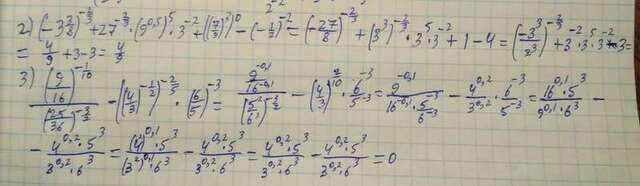 2) (-3 3/8)^(-2/3) + 27^(-2/3) · (9^(0,5))^5 · 3^(-2) + ((7/3)^3)^0 - (-1/2)^(-2) = (-27/8)^(-2/3) + (3^3)^(-2/3) · 3^5 · 3^(-2) + 1 - 4 = (-3^3/2^3)^(-2/3) + 3^(-2) · 3^5 · 3^(-2) - 3 =
= 4/9 + 3 - 3 = 4/9
3) (9/16)^(-1/10) / (25/36)^(-3/2) - ((4/3)^(-1/2))^(-2/5) · (6/5)^(-3) = (9^(-0,1)/16^(-0,1)) / (5^2/6^2)^(-3/2) - (4/3)^(2/10) · 6^(-3)/5^(-3) = 9^(-0,1)/(16^(-0,1) · 5^(-3)/6^(-3)) - 4^(0,2)/3^(0,2) · 6^(-3)/5^(-3) = 16^(0,1) · 5^3 / 9^(0,1) · 6^3 -
- 4^(0,2) · 5^3 / 3^(0,2) · 6^3 = (4^2)^(0,1) · 5^3 / (3^2)^(0,1) · 6^3 - 4^(0,2) · 5^3 / 3^(0,2) · 6^3 = 4^(0,2) · 5^3 / 3^(0,2) · 6^3 - 4^(0,2) · 5^3 / 3^(0,2) · 6^3 = 0